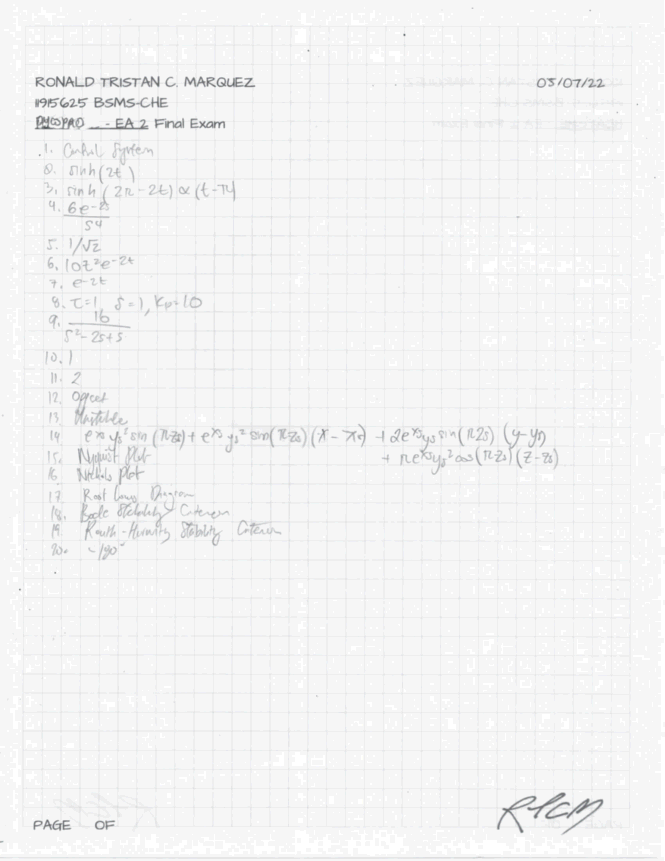 RONALD TRISTAN C. MARQUEZ 05/07/22
1915625 BSMS-CHE
- EA 2 Final Exam
1. Control System
2. sinh(2t)
3. sinh (2π-2t) ∝ (t-π)
4. 6e-2s
s4
5. 1/√2
6. 10t²e-2t
7. e-2t
8. τ=1, δ=1, Kp=10
9. 16
s²-2s+5
10. 1
11. 2
12. Offset
13. Unstable
14 exs ys² sin (πzs) + exs ys² sin(πzs) (x-xs) + 2exs ys sin(πzs) (y-ys)
+ πexs ys² cos(πzs) (z-zs)
15. Nyquist Plot
16 Nichols Plot
17 Root Locus Diagram
18. Bode Stability Criterion
19. Routh-Hurwitz Stability Criterion
20. -180°
PAGE OF
RTCM